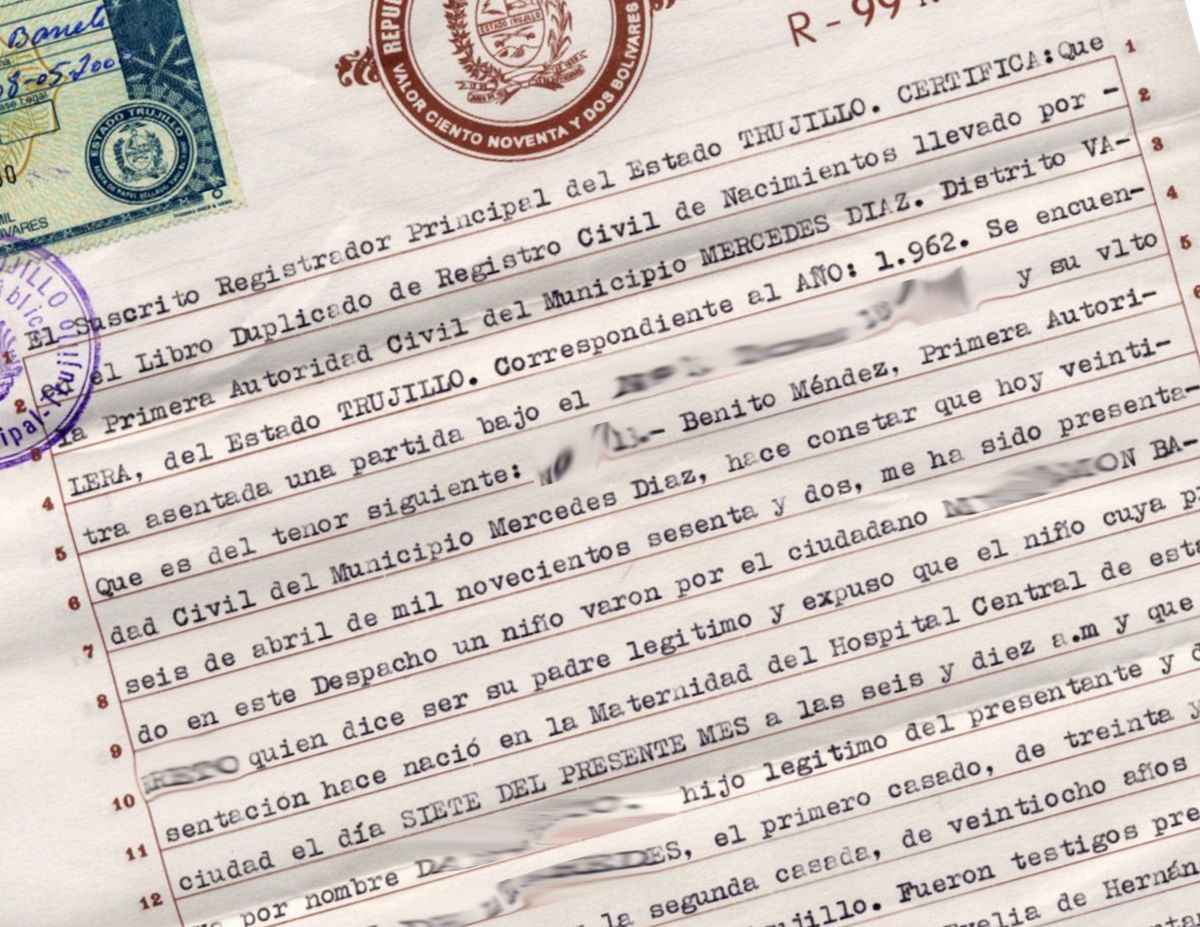 Barret
08-05-200
ESTADO TRUJILLO
VARES
REPUB
ESTADO TRUJILLO
VALOR CIENTO NOVENTA Y DOS BOLIVARES
R - 99
El Suscrito Registrador Principal del Estado TRUJILLO. CERTIFICA: Que
el Libro Duplicado de Registro Civil de Nacimientos llevado por -
la Primera Autoridad Civil del Municipio MERCEDES DIAZ. Distrito VA-
LERA, del Estado TRUJILLO. Correspondiente al AÑO: 1.962. Se encuen-
tra asentada una partida bajo el y su vlto
Que es del tenor siguiente: Benito Méndez, Primera Autori-
dad Civil del Municipio Mercedes Diaz, hace constar que hoy veinti-
seis de abril de mil novecientos sesenta y dos, me ha sido presenta-
do en este Despacho un niño varon por el ciudadano BA-
quien dice ser su padre legitimo y expuso que el niño cuya p
sentación hace nació en la Maternidad del Hospital Central de esta
ciudad el día SIETE DEL PRESENTE MES a las seis y diez a.m y que
por nombre hijo legitimo del presentante y d
el primero casado, de treinta y
la segunda casada, de veintiocho años
Fueron testigos pre
de Hernán
1
2
3
4
5
6
1
2
3
4
5
6
7
8
9
10
11
12